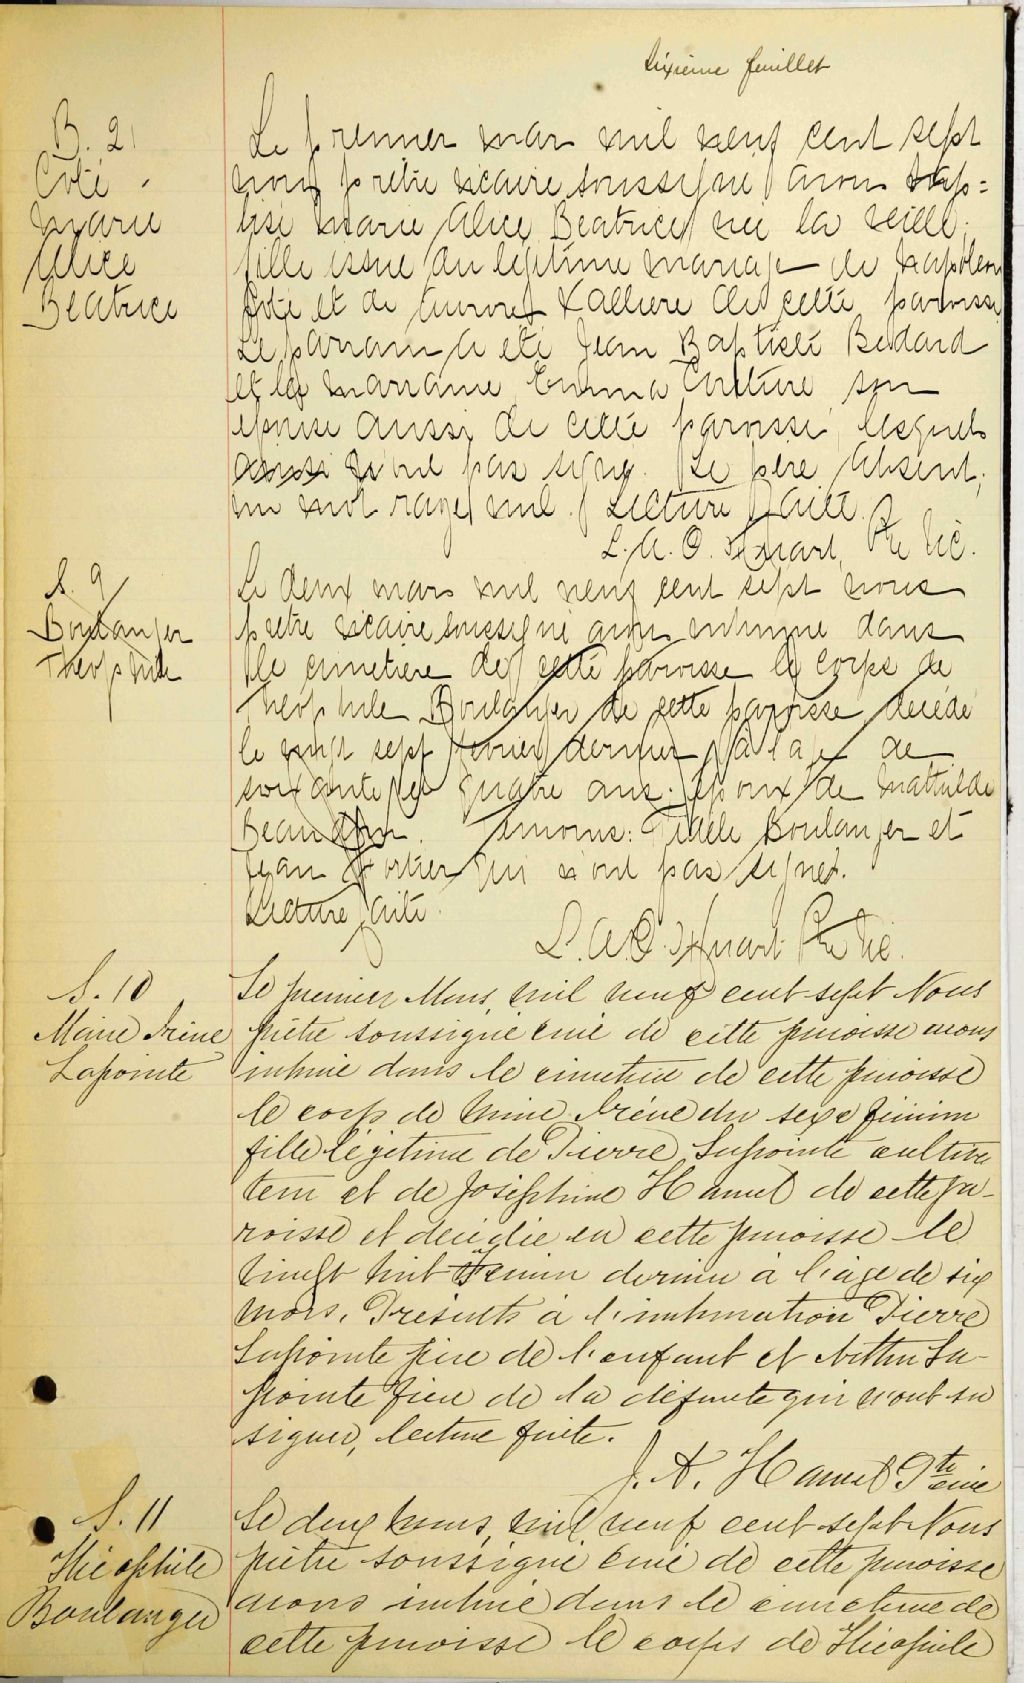 Sixième feuillet
B. 21
Coté
Marie
Alice
Béatrice
Le premier mars mil neuf cent sept
nous prêtre vicaire soussigné avons bap=
tisé Marie Alice Béatrice née la veille,
fille issue du légitime mariage de Napoléon
Coté et de Aurore Vallière de cette paroisse
Le parrain a été Jean Baptiste Bédard
et la marraine Emma Couture son
épouse aussi de cette paroisse, lesquels
n'ont pas signé. Le père absent.
un mot rayé nul. Lecture faite.
L. A. O. Ptre Vic.
S. 9
Boulanger
Théophile
Le deux mars mil neuf cent sept nous
prêtre vicaire soussigné avons inhumé dans
le cimetière de cette paroisse le corps de
Théophile Boulanger de cette paroisse, décédé
le vingt sept février dernier à l'age de
soixante et quatre ans. époux de Mathilde
Témoins: Fidèle Boulanger et
Jean Fortier qui n'ont pas signé.
Lecture faite.
L. A. O. Ptre Vic.
S. 10
Marie Irène
Lapointe
Le premier Mars, mil neuf cent-sept Nous
prêtre soussigné curé de cette paroisse avons
inhumé dans le cimetière de cette paroisse
le corps de Marie Irène du sexe féminin
fille légitime de Pierre Lapointe cultiva
teur et de Joséphine Hamel de cette pa-
roisse et décédée en cette paroisse le
vingt huit Fevrier dernier à l'âge de six
mois. Présents à l'inhumation Pierre
Lapointe père de l'enfant et Arthur La-
pointe frère de la défunte qui n'ont su
signer, lecture faite.
J. A. Hamel Ptre curé
S. 11
Théophile
Boulanger
Le deux Mars, mil neuf cent-sept Nous
prêtre soussigné curé de cette paroisse
avons inhumé dans le cimetière de
cette paroisse le corps de Théophile